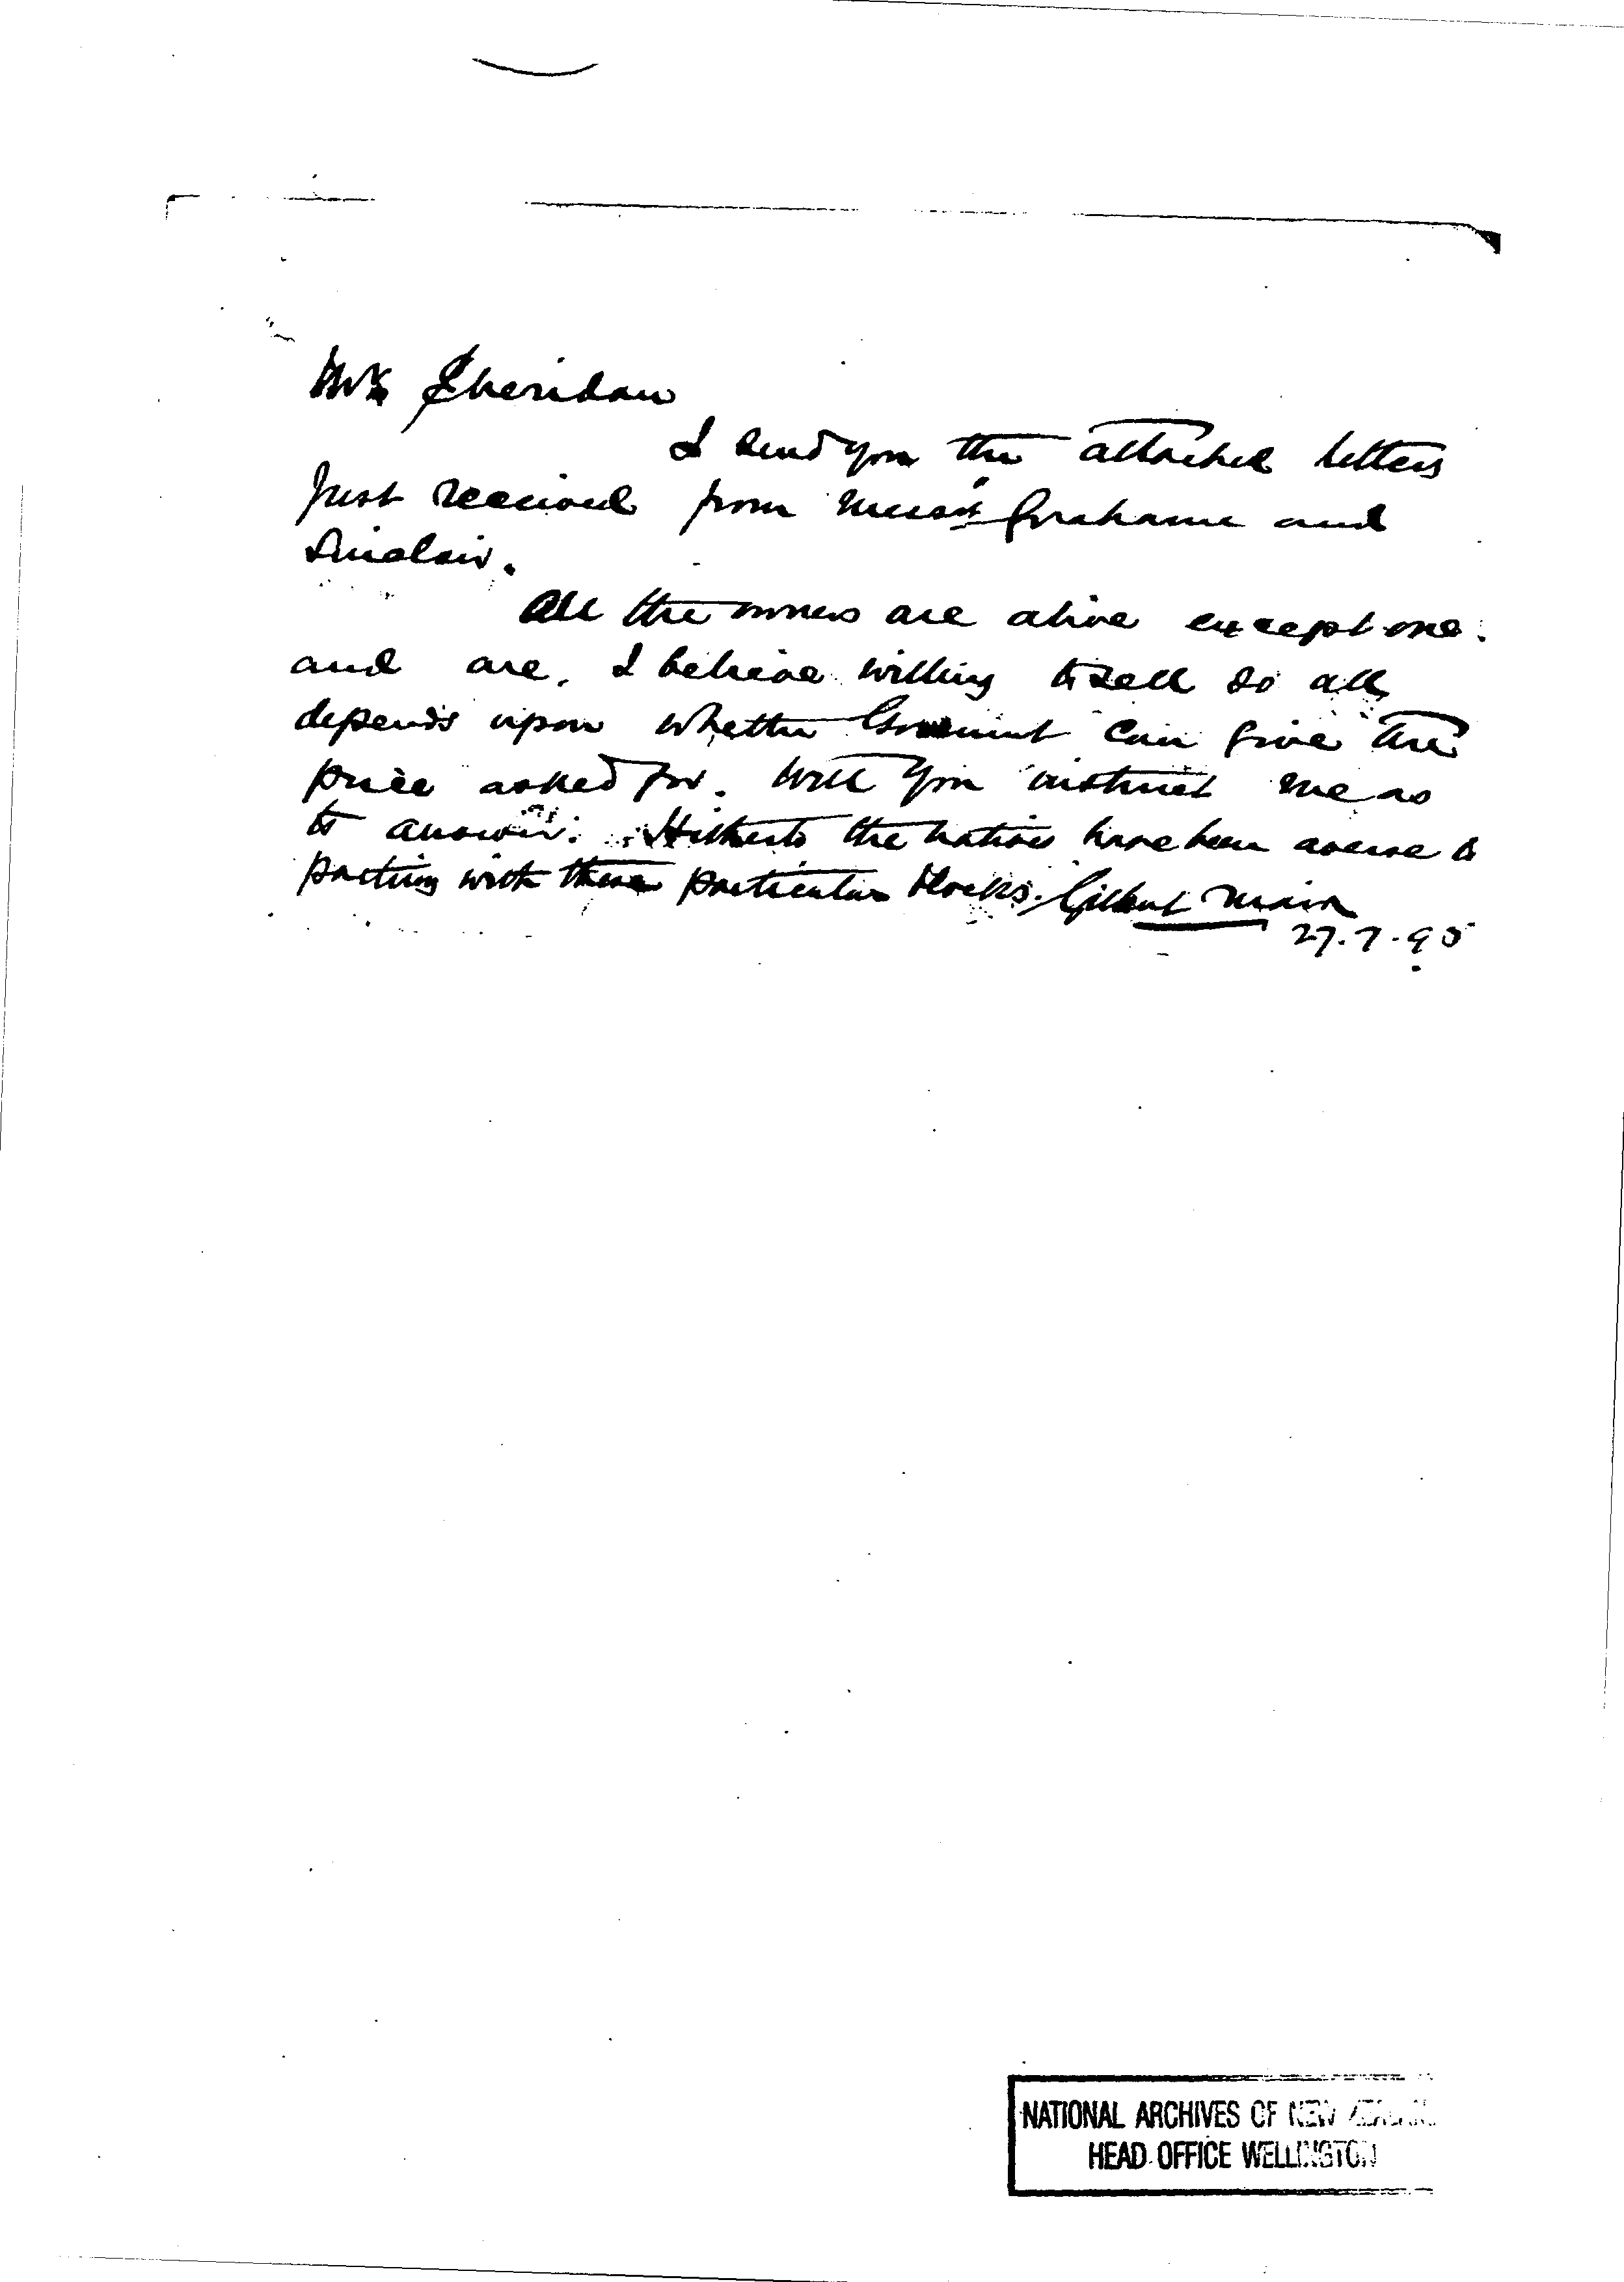 Mr Sheridan
I send you the attached letters
just received from Messrs Grahame and
Sinclair.
All the owners are alive except one.
and are, I believe willing to sell so all
depends upon whether Govermint can give the
price asked for. Will you instruct me as
to answer. Hitherto the natives have been averse to
parting with these particular blocks. Gilbert Mair
27.7.95
NATIONAL ARCHIVES OF NEW ZEALAND
HEAD OFFICE WELLINGTON